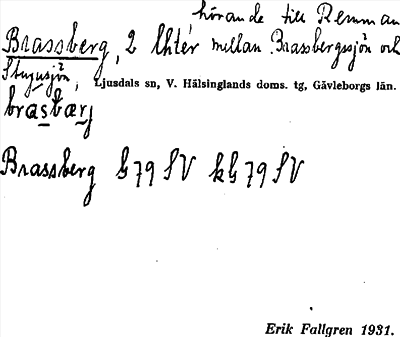 hörande till Remman
Brassberg, 2 lhter mellan Brassbergssjön och
Stugusjön, Ljusdals sn, V. Hälsinglands doms. tg, Gävleborgs län.
brasbærj
Brassberg G 79 SV kG 79 SV
Erik Fallgren 1931.